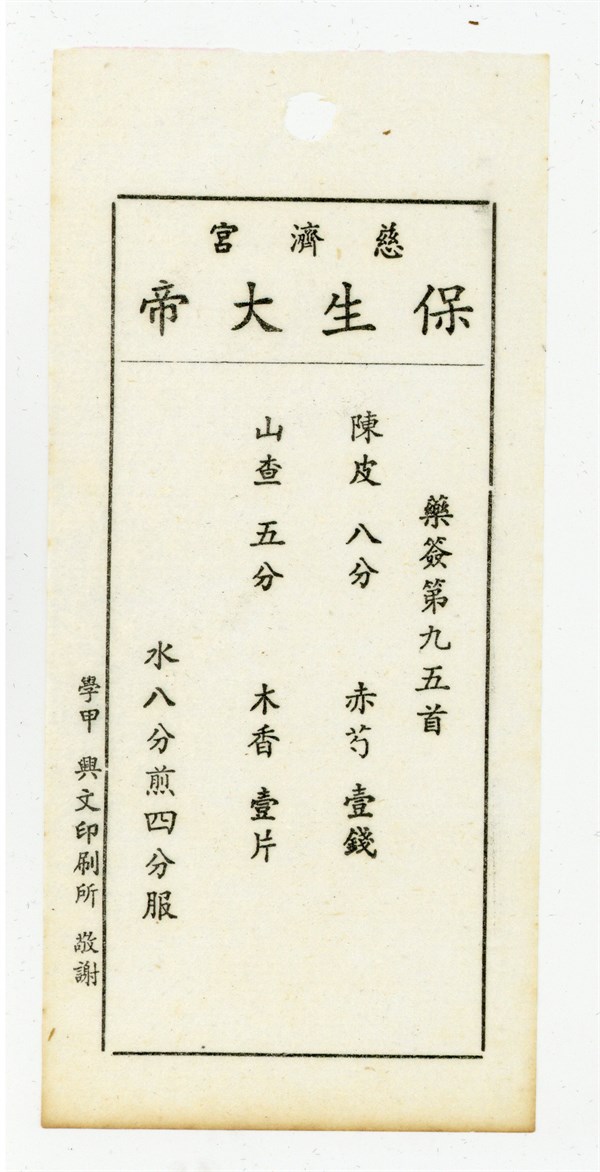 慈濟宮
保生大帝
藥簽第九五首
陳皮 八分 赤芍 壹錢
山查 五分 木香 壹片
水八分煎四分服
學甲 興文印刷所 敬謝